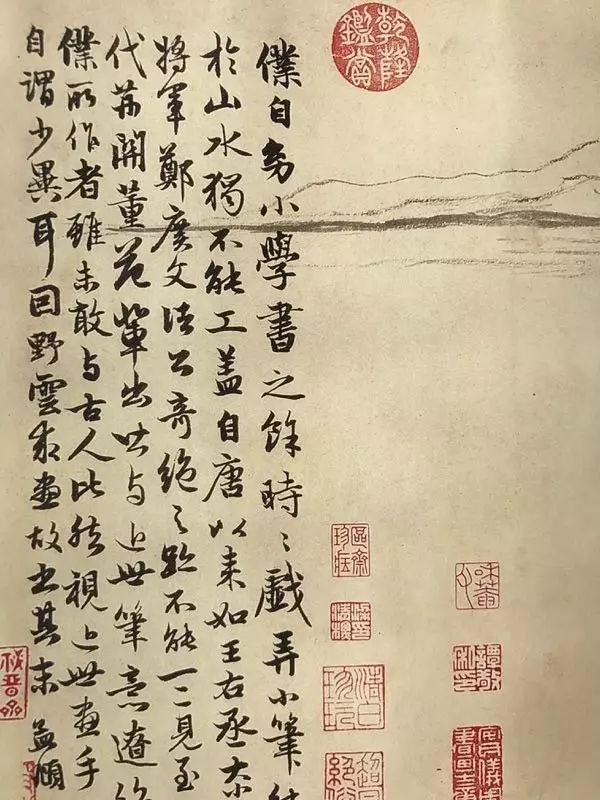 乾隆鑑賞
僕自幼小學書之餘時〻戲弄小筆然
於山水獨不能工蓋自唐以來如王右丞大
將軍鄭廣文諸公奇絕之跡不能一二見至
代荊關董范輩出皆與近世筆意遼絕
僕所作者雖未敢與古人比然視近世畫手
自謂少異耳因野雲求畫故書其末孟頫